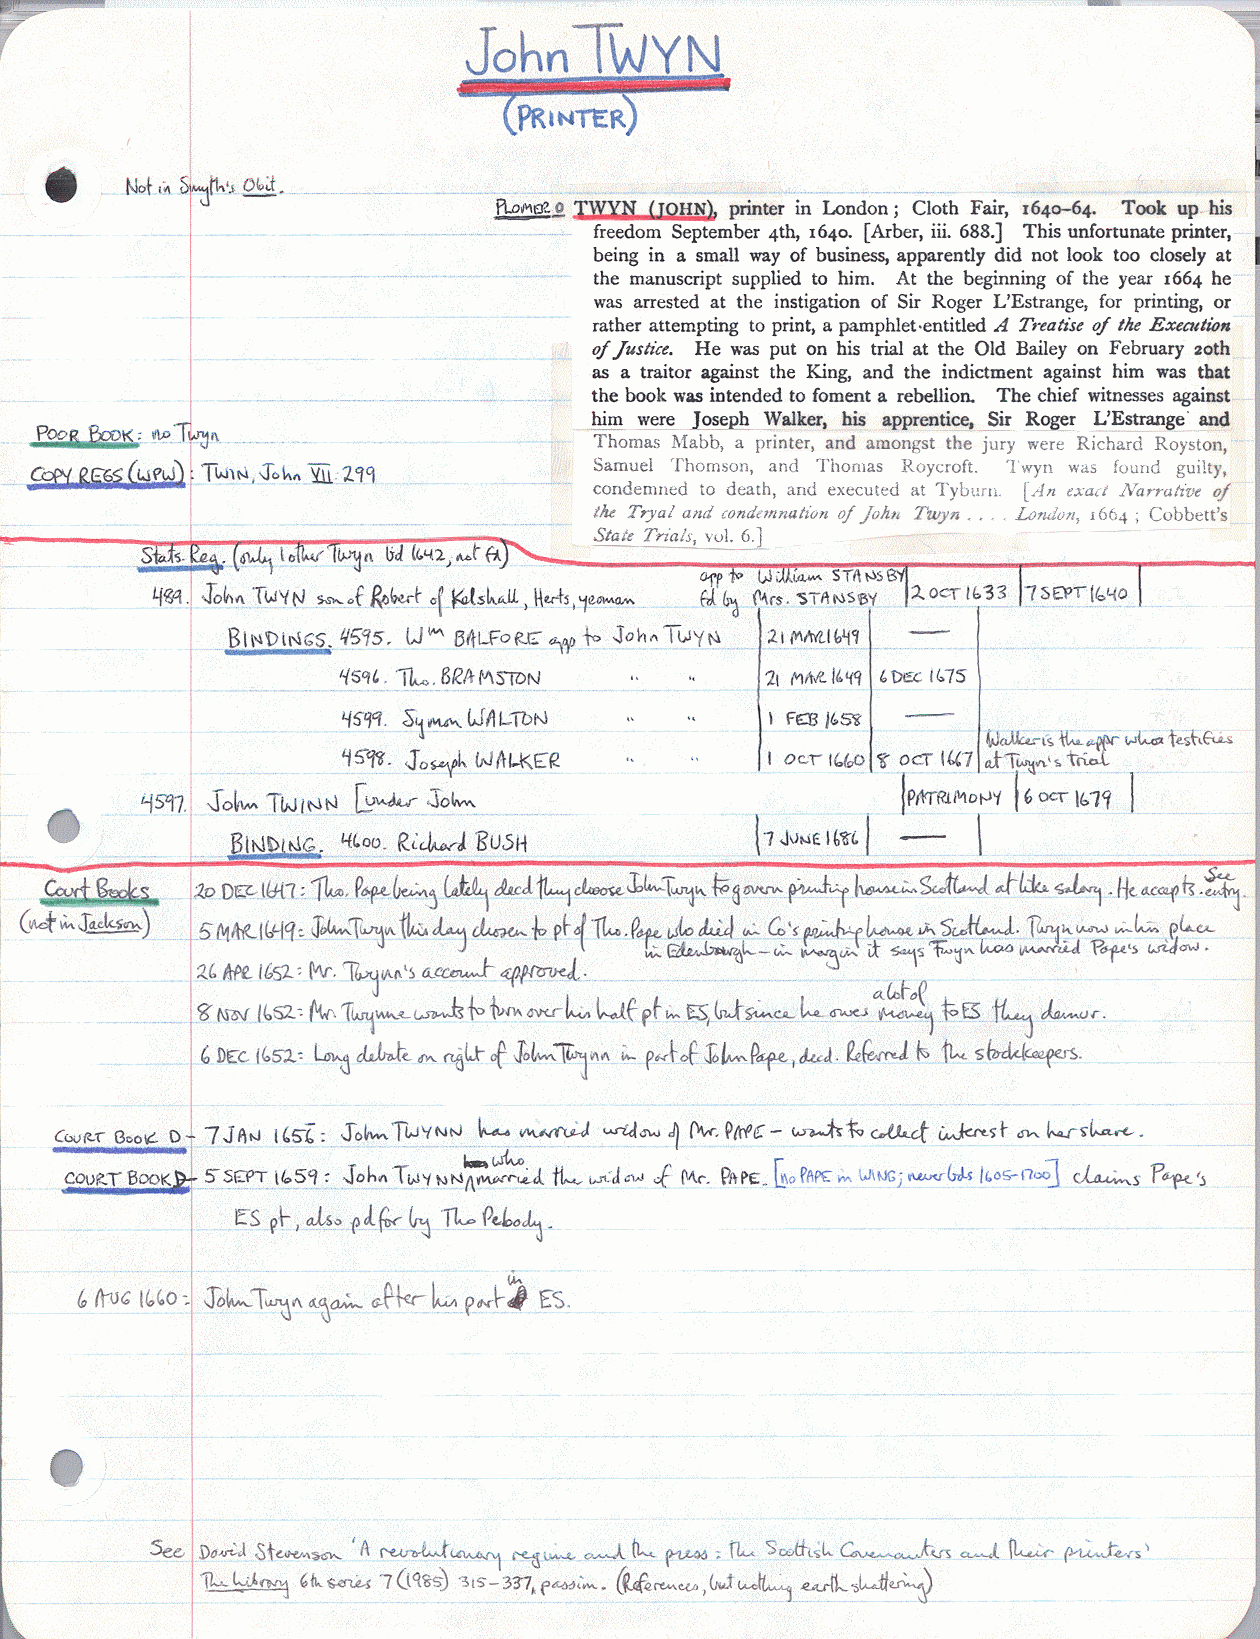 John TWYN
(PRINTER)
Not in Smyth's Obit.
PLOMER: TWYN (JOHN), printer in London; Cloth Fair, 1640–64. Took up his
freedom September 4th, 1640. [Arber, iii. 688.] This unfortunate printer,
being in a small way of business, apparently did not look too closely at
the manuscript supplied to him. At the beginning of the year 1664 he
was arrested at the instigation of Sir Roger L'Estrange, for printing, or
rather attempting to print, a pamphlet entitled A Treatise of the Execution
of Justice. He was put on his trial at the Old Bailey on February 20th
as a traitor against the King, and the indictment against him was that
the book was intended to foment a rebellion. The chief witnesses against
him were Joseph Walker, his apprentice, Sir Roger L'Estrange and
Thomas Mabb, a printer, and amongst the jury were Richard Royston,
Samuel Thomson, and Thomas Roycroft. Twyn was found guilty,
condemned to death, and executed at Tyburn. [An exact Narrative of
the Tryal and condemnation of John Twyn .... London, 1664; Cobbett's
State Trials, vol. 6.]
POOR BOOK: no Twyn
COPY REGS (WPW): TWIN, John VII: 299
Stats. Reg. (only 1 other Twyn bd 1642, not fd)
489. John TWYN son of Robert of Kelshall, Herts, yeoman app to William STANSBY 2 OCT 1633 7 SEPT 1640
fd by Mrs. STANSBY
BINDINGS. 4595. Wm BALFORE app to John TWYN 21 MAR 1649 —
4596. Tho. BRAMSTON " " 21 MAR 1649 6 DEC 1675
4599. Symon WALTON " " 1 FEB 1658 —
4598. Joseph WALKER " " 1 OCT 1660 8 OCT 1667 Walker is the appr who testifies
at Twyn's trial
4597. John TWINN [under John PATRIMONY 6 OCT 1679
BINDING. 4600. Richard BUSH 7 JUNE 1686 —
Court Books 20 DEC 1647: Tho. Pape being lately decd they choose John Twyn to govern printing house in Scotland at like salary. He accepts. See entry.
(not in Jackson) 5 MAR 1649: John Twyn this day chosen to pt of Tho. Pape who died in Co's printing house in Scotland. Twyn now in his place
in Edenbourgh – in margin it says Twyn has married Pape's widow.
26 APR 1652: Mr. Twynn's account approved.
8 NOV 1652: Mr. Twynne wants to turn over his half pt in ES, but since he owes a lot of money to ES they demur.
6 DEC 1652: Long debate on right of John Twynn in part of John Pape, decd. Referred to the stockkeepers.
COURT BOOK D – 7 JAN 1656: John TWYNN has married widow of Mr. PAPE – wants to collect interest on her share.
COURT BOOK D – 5 SEPT 1659: John TWYNN who married the widow of Mr. PAPE. [no PAPE in WING; never bds 1605–1700] claims Pape's
ES pt, also pd for by Tho Pebody.
6 AUG 1660: John Twyn again after his part in ES.
See David Stevenson 'A revolutionary regime and the press: the Scottish Covenanters and their printers'
The Library 6th series 7 (1985) 315–337, passim. (References, but nothing earth shattering)